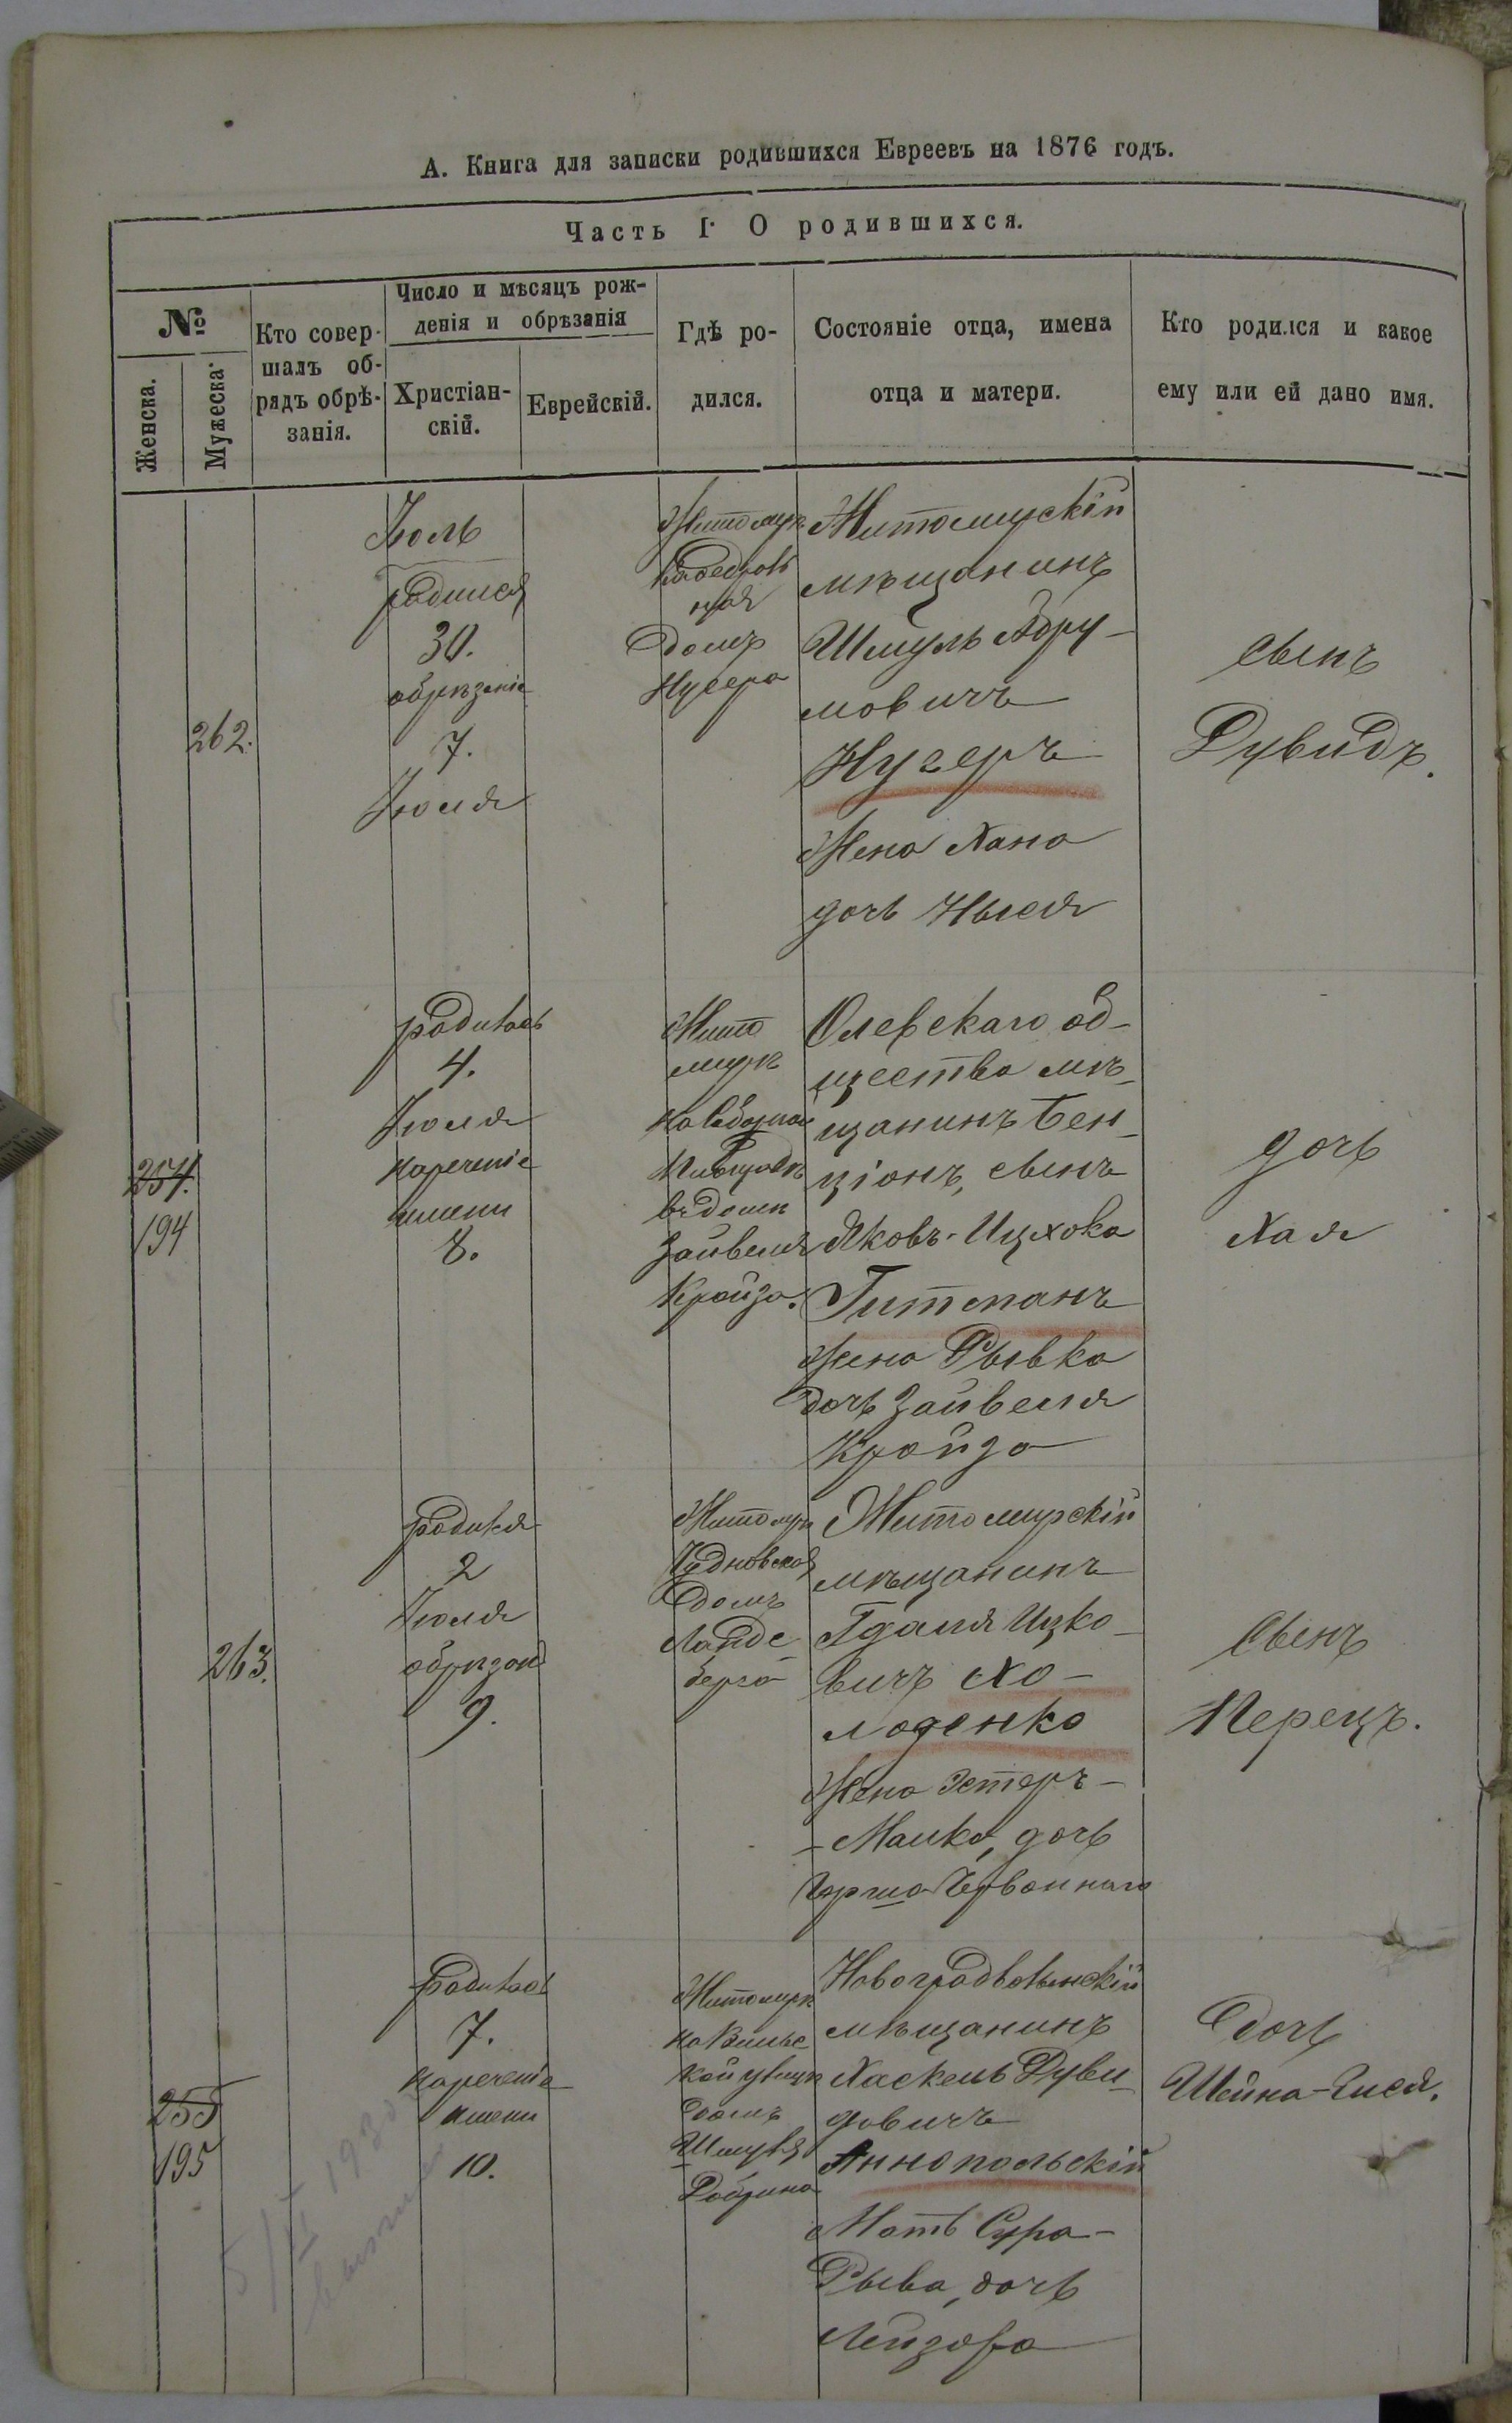 А. Книга для записки родившихся Евреевъ на 1876 годъ.
Часть I. О родившихся.
№
Женска.
Мужеска.
Кто совер-
шалъ об-
рядъ обрѣ-
занія.
Число и мѣсяцъ рож-
денія и обрѣзанія
Христіан-
скій.
Еврейскій.
Гдѣ ро-
дился.
Состояніе отца, имена
отца и матери.
Кто родился и какое
ему или ей дано имя.
262.
Іюль
родился
30.
обрѣзаніе
7.
Іюля
Житомир
Кафедраль
ная
домъ
Житомирскій
мѣщанинъ
Шмуль Абру-
мовичъ
Нугеръ
Жена Хана
дочь Нысея
сынъ
Дувидъ.
254.
194
родилась
4.
Іюля
нареченіе
имени
8.
Жито
мирѣ
на
въ домѣ
Зайвеля
Кройза.
Олевскаго об-
щества мѣ-
щанинъ Бен-
ціонъ, сынъ
Яковъ-Ицхока
Гитманъ
Жена Рывка
дочь Зайвеля
Кройза
дочь
Хая
263.
родился
2
Іюля
обрѣзан
9.
Житомир
Чудновская
домъ
Ланде-
берга
Житомирскій
мѣщанинъ
Гдаля Ицко-
вичъ Хо-
лоденко
Жена Эстеръ-
-Малка, дочь
Герша Червоннаго
Сынъ
Перецъ.
255
195
родилась
7.
нареченіе
имени
10.
Житомирѣ
на Вильс
кой улицѣ
домъ
Шмуля
Новоградволынскій
мѣщанинъ
Хаскель Дуви-
довичъ
Аннопольскій
Мать Сура-
Рыва, дочь
Лейзора
дочь
Шейна-Гися.